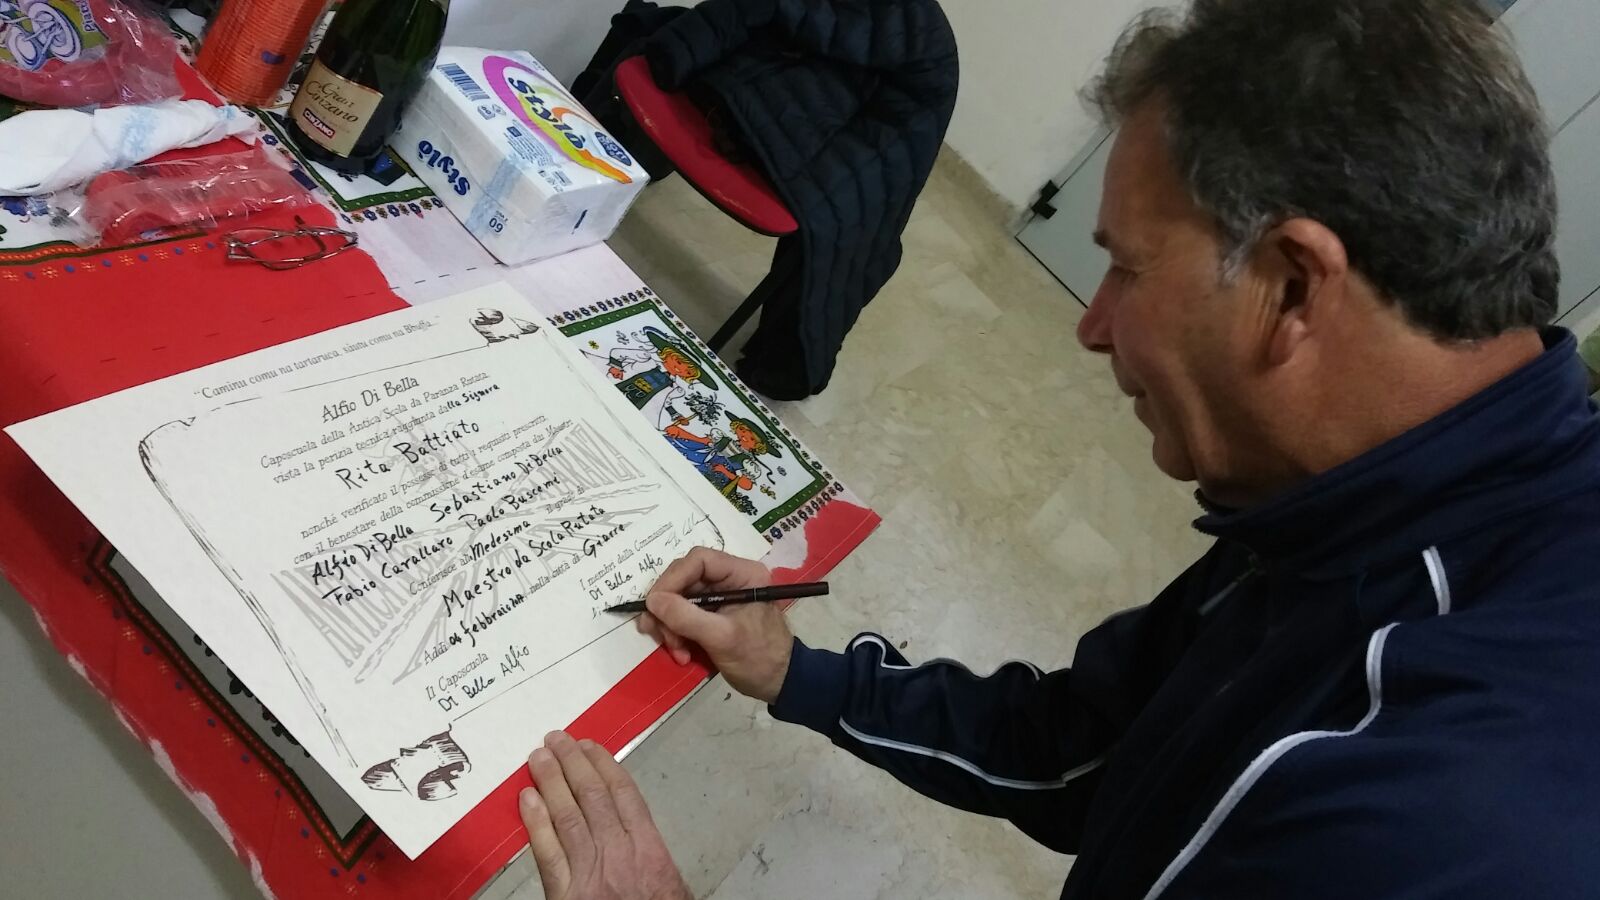 Gran Cinzano
CINZANO
Stylo
Stylo
60
"Caminu comu na tartaruca, sautu comu na Bbuffa..."
Alfio Di Bella
Caposcuola della Antica Scola da Paranza Rutata,
vista la perizia tecnica raggiunta dalla Signora
Rita Battiato
nonché verificato il possesso di tutti i requisiti prescritti,
con il benestare della commissione d'esame composta dai Maestri
Alfio Di Bella Sebastiano Di Bella
Fabio Cavallaro Paolo Buscemi
Conferisce alla Medesima il grado di
Maestro da Scola Rutata
Addì 04 febbraio nella città di Giarre
Il Caposcuola
Di Bella Alfio
I membri della Commissione
Di Bella Alfio